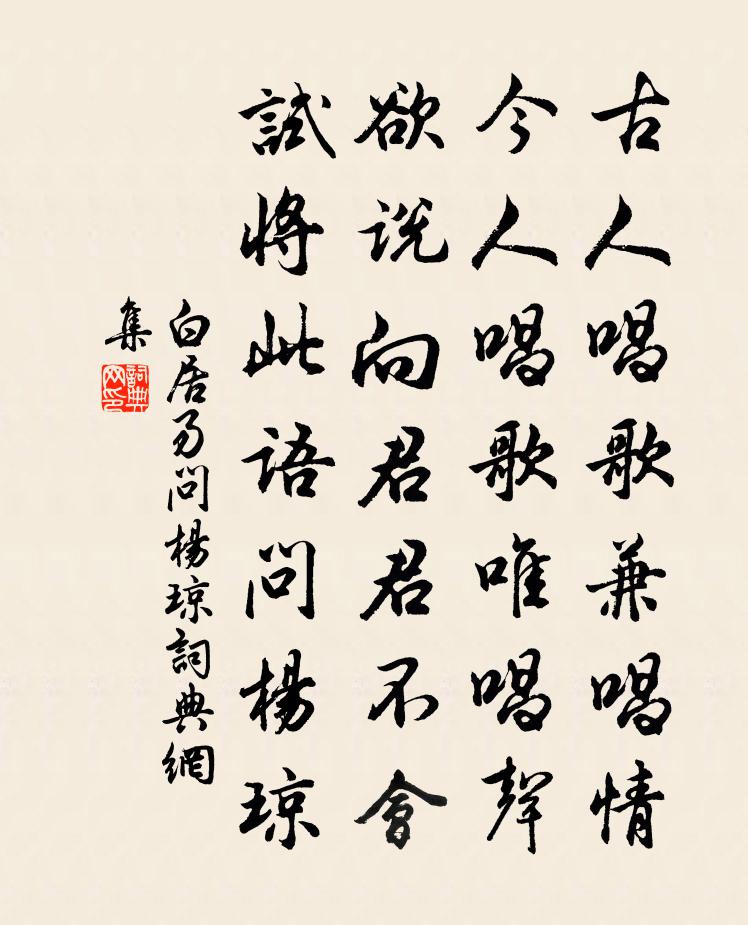 古人唱歌兼唱情
今人唱歌唯唱聲
欲説向君君不會
試將此語問楊琼
白居易問楊琼詞典網
集
詞典網印